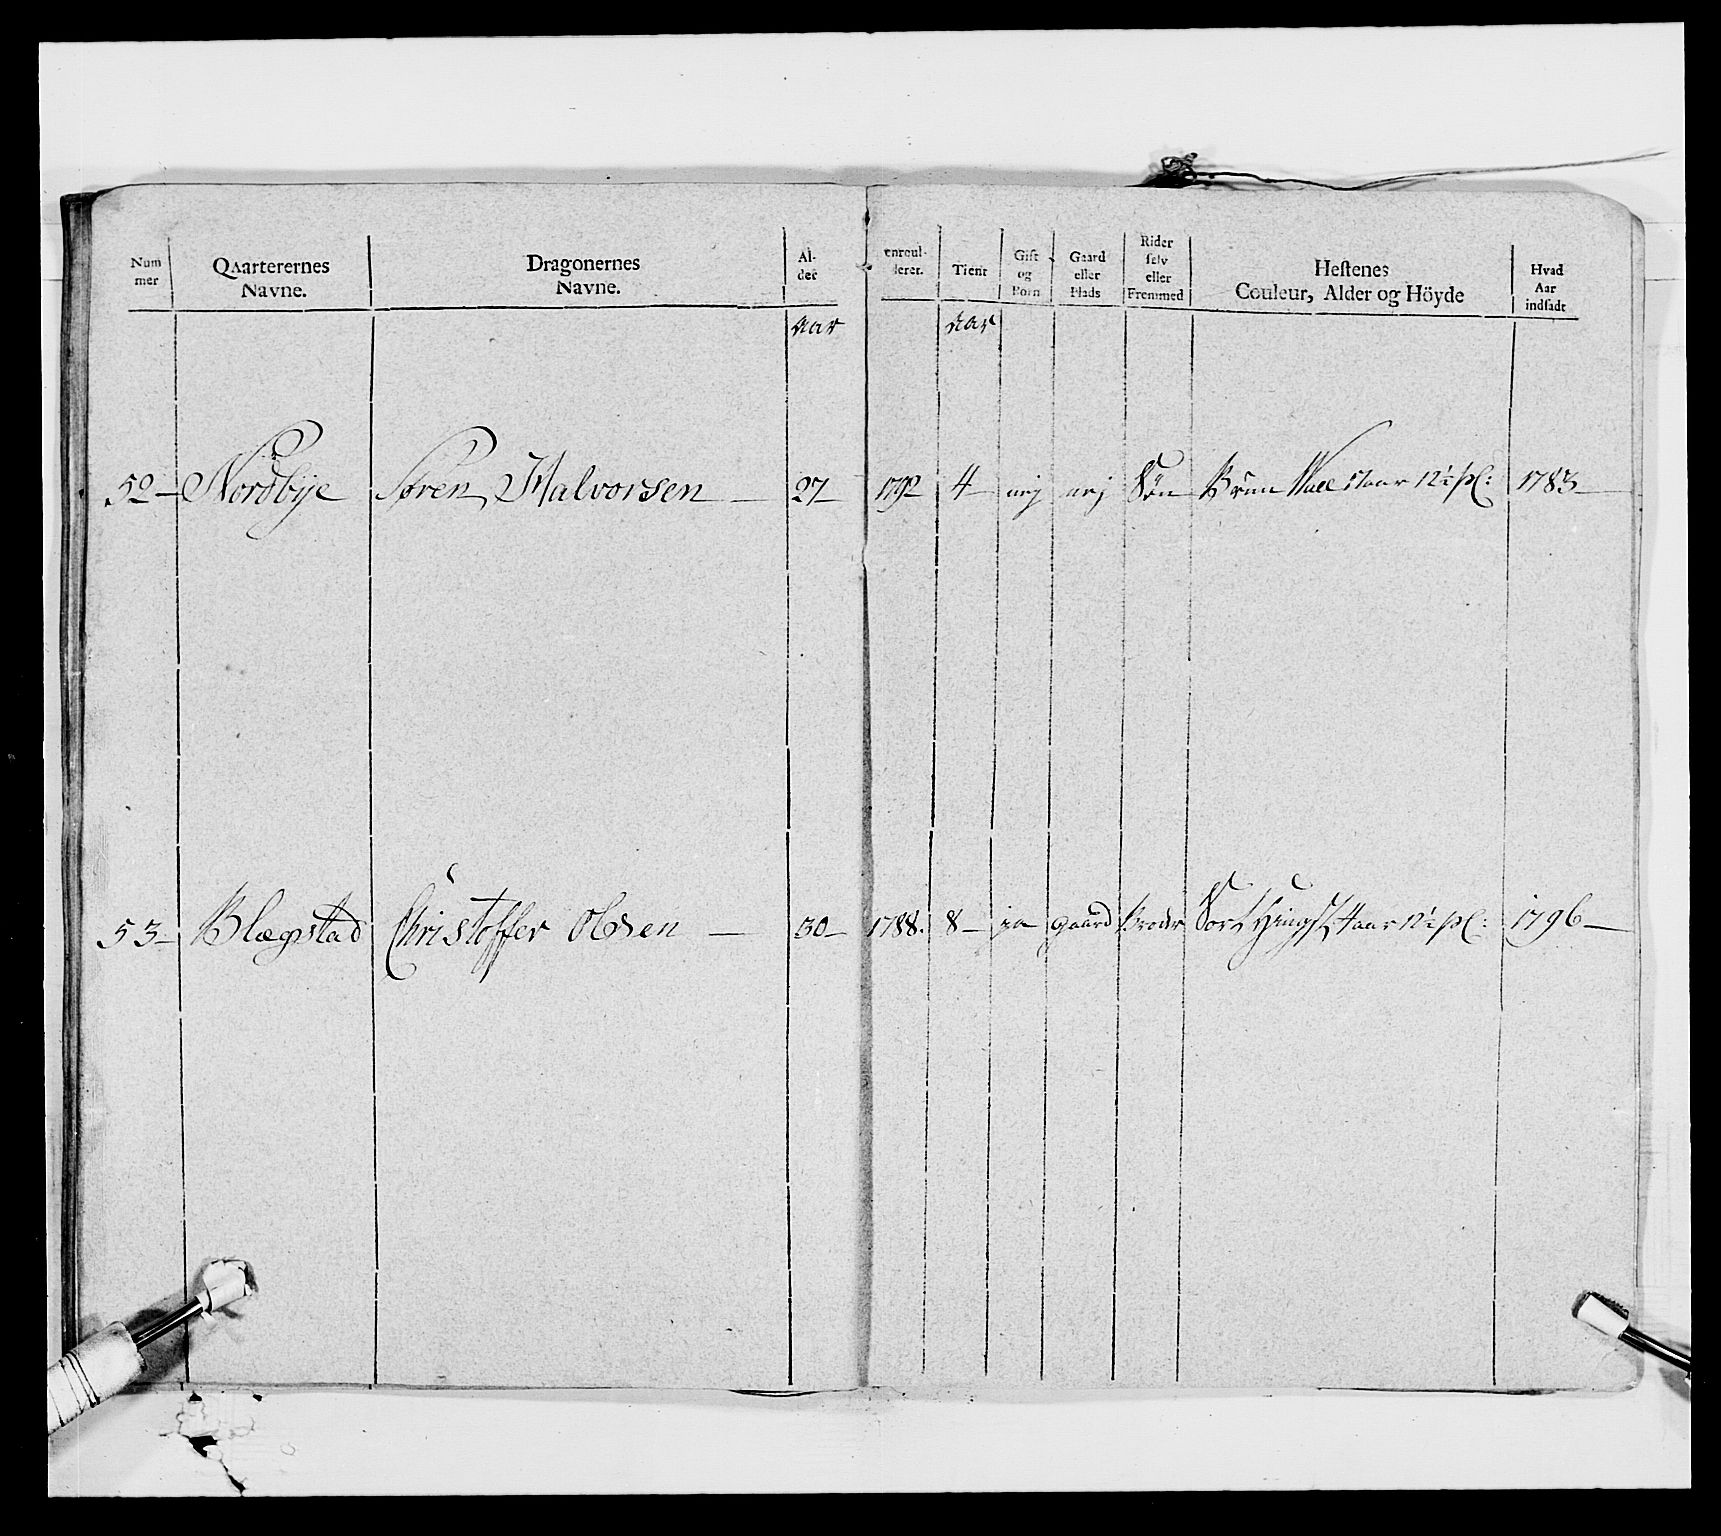 Num mer | Qvarterernes Navne. | Dragonernes Navne. | Al- der | enroul- lerer. | Tient | Gift og Born | Gaard eller Plads | Rider selv eller Fremmed | Hestenes Couleur, Alder og Höyde | Hvad Aar indsadt
Aar | Aar
52 – Nordbye | Søren Halvorsen – | 27 | 1792 | 4 – | nej | nej | Søn | Brun Wall 17 aar 12 qt: | 1783 –
53 – Blægstad | Christoffer Olsen – | 30 – | 1788. | 8 – | ja | gaard | Broder | Sort Hingst 4 aar 12 qt: | 1796 –